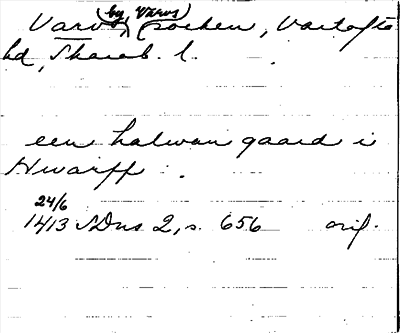 Varvs (by, Varvs) socken, Vartofta
hd, Skarab. l.
een halwan gaard i
Hwarff
24/6
1413 SDns 2, s. 656 orig.